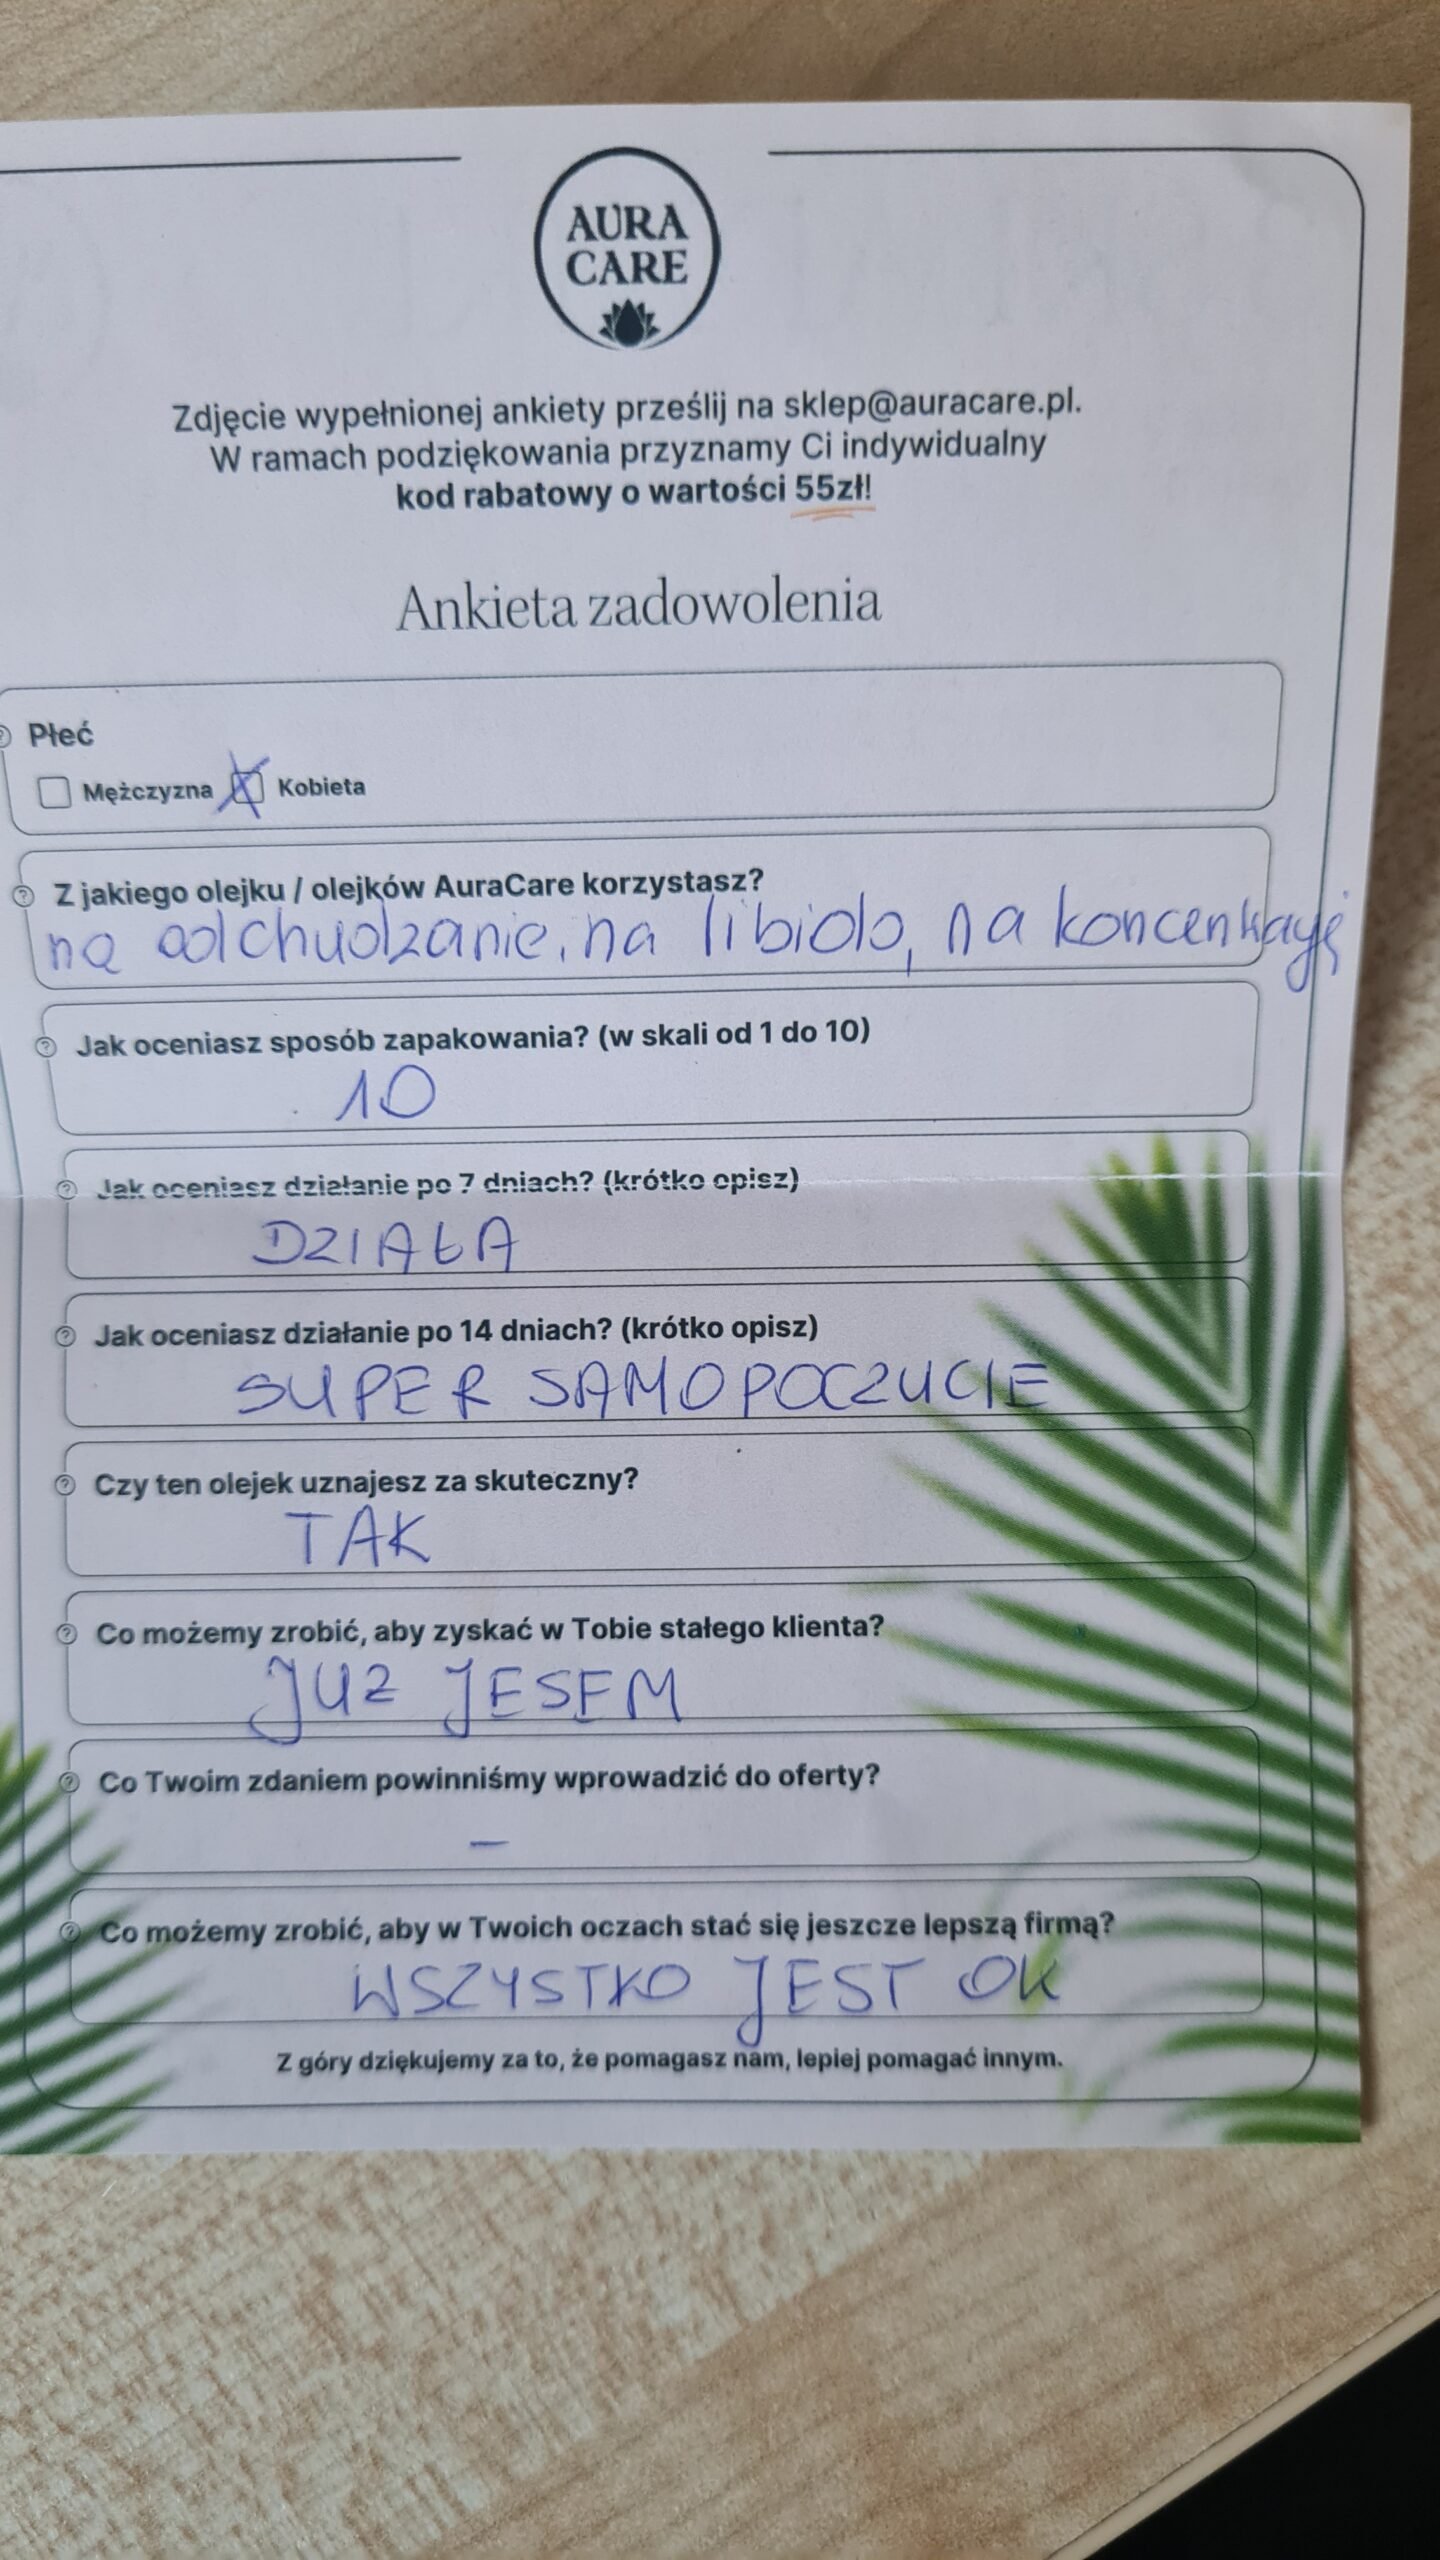 AURA
CARE
Zdjęcie wypełnionej ankiety prześlij na sklep@auracare.pl.
W ramach podziękowania przyznamy Ci indywidualny
kod rabatowy o wartości 55zł!
Ankieta zadowolenia
Płeć
Mężczyzna Kobieta
Z jakiego olejku / olejków AuraCare korzystasz?
na odchudzanie, na libido, na koncentrację
Jak oceniasz sposób zapakowania? (w skali od 1 do 10)
10
Jak oceniasz działanie po 7 dniach? (krótko opisz)
DZIAŁA
Jak oceniasz działanie po 14 dniach? (krótko opisz)
SUPER SAMOPOCZUCIE
Czy ten olejek uznajesz za skuteczny?
TAK
Co możemy zrobić, aby zyskać w Tobie stałego klienta?
JUZ JESEM
Co Twoim zdaniem powinniśmy wprowadzić do oferty?
–
Co możemy zrobić, aby w Twoich oczach stać się jeszcze lepszą firmą?
WSZYSTKO JEST OK
Z góry dziękujemy za to, że pomagasz nam, lepiej pomagać innym.